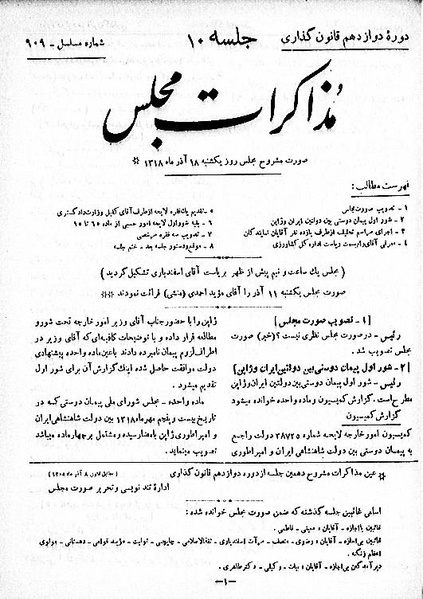 دورهٔ دوازدهم قانون گذاری
جلسه ۱۰
شماره مسلسل - ۹۰۹
مذاکرات مجلس
صورت مشروح مجلس روز یکشنبه ۱۸ آذر ماه ۱۳۱۸ *
فهرست مطالب:
۱ - تصویب صورت مجلس
۲ - شور اول پیمان دوستی بین دولتین ایران و ژاپن
۳ - اجرای مراسم تحلیف از طرف یازده نفر آقایان نمایندگان
۴ - معرفی آقای وارسته بریاست اداره کل کشاورزی
۵ - تقدیم یک فقره لایحه از طرف آقای کفیل وزارت دادگستری
۶ - بقیه شور اول لایحه امور حسبی از ماده ۶۵ تا ۹۵
۷ - تصویب سه فقره مرخصی
۸ - موقع و دستور جلسه بعد - ختم جلسه
(مجلس یک ساعت و نیم پیش از ظهر بریاست آقای اسفندیاری تشکیل گردید)
صورت مجلس یکشنبه ۱۱ آذر را آقای مؤید احمدی (منشی) قرائت نمودند **
[۱ - تصویب صورت مجلس]
رئیس - در صورت مجلس نظری نیست؟ (خیر) صورت
مجلس تصویب شد.
[۲ - شور اول پیمان دوستی بین دولتین ایران و ژاپن]
رئیس - شور اول پیمان دوستی بین دولتین ایران و ژاپن
مطرح است. گزارش کمیسیون و ماده واحده خوانده میشود
گزارش کمیسیون
کمیسیون امور خارجه لایحه شماره ۳۸۷۲۵ دولت راجع
به پیمان دوستی بین دولت شاهنشاهی ایران و امپراطوری
ژاپن را با حضور جناب آقای وزیر امور خارجه تحت شور و
مطالعه قرار داده و با توضیحات کافیه‌ای که آقای وزیر در
اطراف لزوم پیمان نامبرده دادند با عین ماده واحده پیشنهادی
دولت موافقت حاصل شده اینک گزارش آن برای شور اول
تقدیم میشود.
ماده واحده - مجلس شورای ملی پیمان دوستی که در
تاریخ بیست و پنجم مهر ماه ۱۳۱۸ بین دولت شاهنشاهی ایران
و امپراطوری ژاپن بامضا رسیده و مشتمل بر چهار ماده میباشد
تصویب مینماید
* عین مذاکرات مشروح دهمین جلسه از دوره دوازدهم قانون گذاری
اداره تند نویسی و تحریر صورت مجلس
اسامی غائبین جلسه گذشته که ضمن صورت مجلس خوانده شده:
غائبین با اجازه - آقایان:
غائبین بی اجازه - آقایان:
دیر آمدگان بی اجازه - آقایان:
-۱-